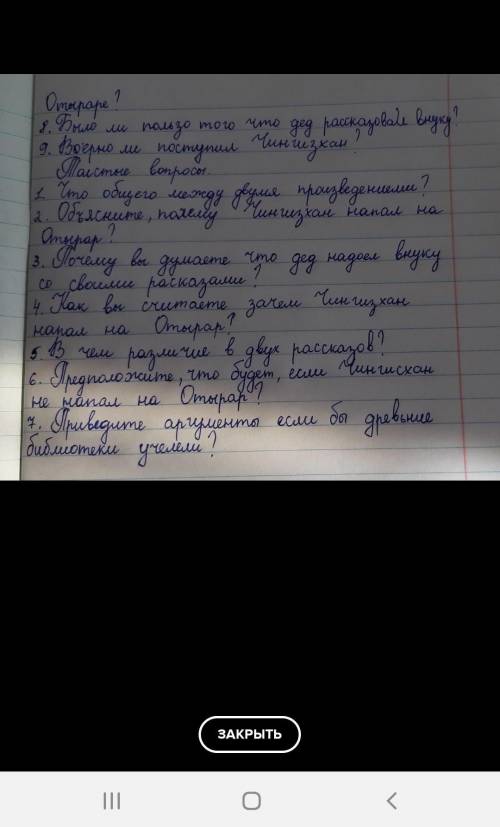 Отыраре?
8. Было ли пользо того что дед рассказовал внуку?
9. Воерно ли поступил Чингизхан?
Толстые вопросы.
1. Что общего между двумя произведениеми?
2. Объясните, почему Чингизхан напал на
Отырар?
3. Почему вы думаете что дед надоел внуку
со своими расказами?
4. Как вы считаете зачем Чингизхан
напал на Отырар?
5. В чем различие в двух рассказов?
6. Предположите, что будет, если Чингисхан
не напал на Отырар?
7. Приведите аргументы если бы древьние
библиотеки учелели?
ЗАКРЫТЬ